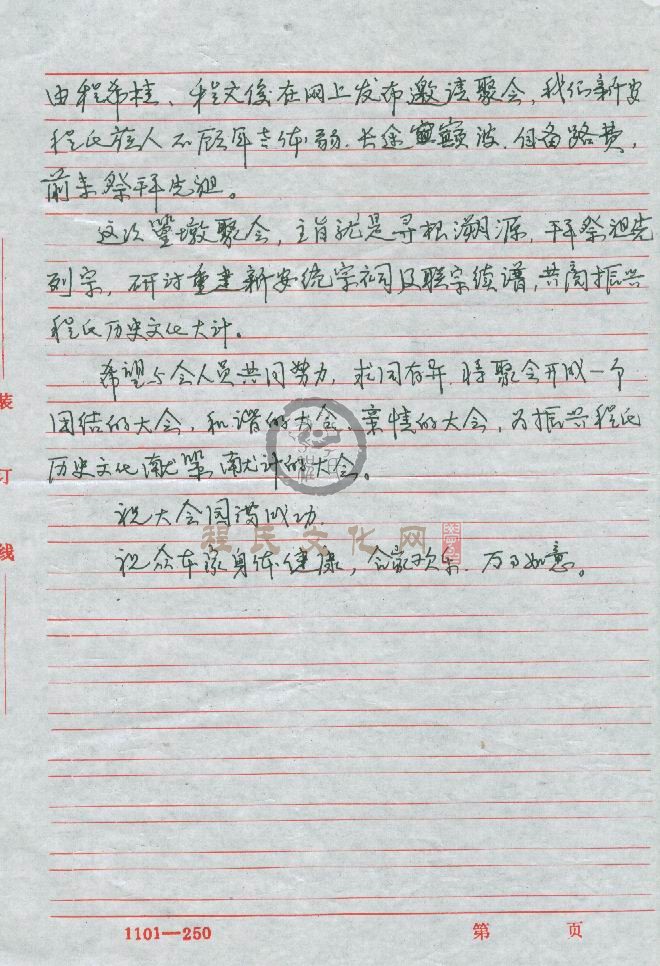 由程希桂、程文俊在网上发布邀请聚会,我们新安
程氏族人不顾年老体弱.长途颠波.自备路费,
前来祭拜先祖。
这次篁墩聚会,主旨就是寻根溯源,拜祭祖先
列宗,研讨重建新安统宗祠及联宗续谱,共商振兴
程氏历史文化大计。
希望与会人员共同努力,求同存异.将聚会开成一个
团结的大会,和谐的大会、亲情的大会,为振兴程氏
历史文化献策献计的大会。
祝大会圆满成功.
程氏文化网
祝众本家身体健康,合家欢乐.万事如意。
装
订
线
1101—250
第 页